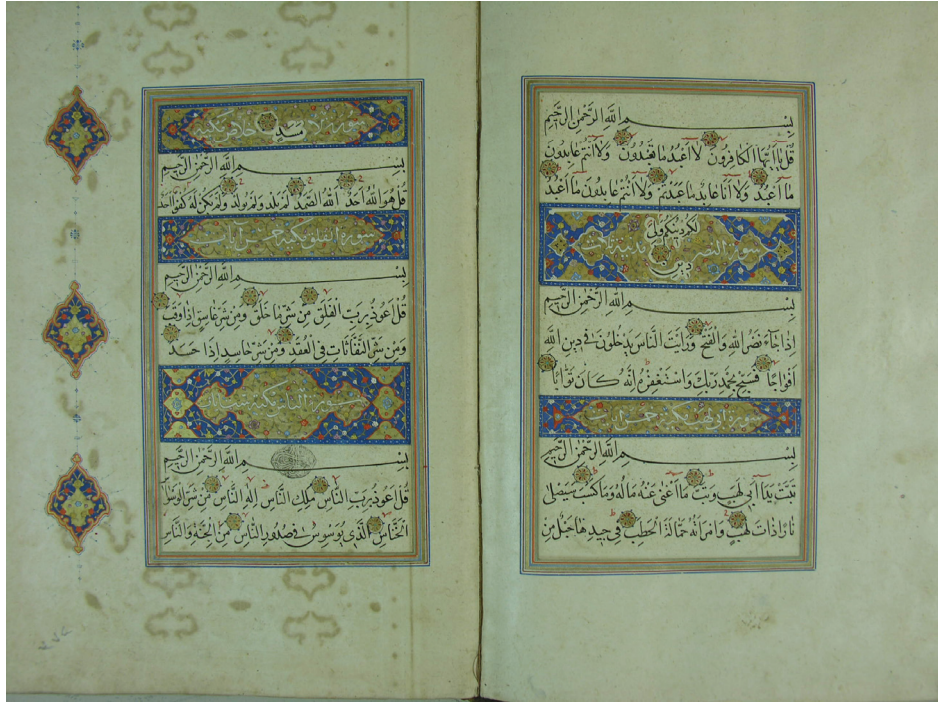 بِسْمِ اللَّهِ الرَّحْمَٰنِ الرَّحِيمِ
قُلْ يَا أَيُّهَا الْكَافِرُونَ لَا أَعْبُدُ مَا تَعْبُدُونَ وَلَا أَنْتُمْ عَابِدُونَ
مَا أَعْبُدُ وَلَا أَنَا عَابِدٌ مَا عَبَدْتُمْ وَلَا أَنْتُمْ عَابِدُونَ مَا أَعْبُدُ
لَكُمْ دِينُكُمْ وَلِيَ
سورة النصر
دِينِ
بِسْمِ اللَّهِ الرَّحْمَٰنِ الرَّحِيمِ
إِذَا جَاءَ نَصْرُ اللَّهِ وَالْفَتْحُ وَرَأَيْتَ النَّاسَ يَدْخُلُونَ فِي دِينِ اللَّهِ
أَفْوَاجًا فَسَبِّحْ بِحَمْدِ رَبِّكَ وَاسْتَغْفِرْهُ إِنَّهُ كَانَ تَوَّابًا
سورة
بِسْمِ اللَّهِ الرَّحْمَٰنِ الرَّحِيمِ
تَبَّتْ يَدَا أَبِي لَهَبٍ وَتَبَّ مَا أَغْنَىٰ عَنْهُ مَالُهُ وَمَا كَسَبَ سَيَصْلَىٰ
نَارًا ذَاتَ لَهَبٍ وَامْرَأَتُهُ حَمَّالَةَ الْحَطَبِ فِي جِيدِهَا حَبْلٌ مِنْ
مَسَدٍ
بِسْمِ اللَّهِ الرَّحْمَٰنِ الرَّحِيمِ
قُلْ هُوَ اللَّهُ أَحَدٌ اللَّهُ الصَّمَدُ لَمْ يَلِدْ وَلَمْ يُولَدْ وَلَمْ يَكُنْ لَهُ كُفُوًا أَحَدٌ
سورة الفلق مكية خمس آيات
بِسْمِ اللَّهِ الرَّحْمَٰنِ الرَّحِيمِ
قُلْ أَعُوذُ بِرَبِّ الْفَلَقِ مِنْ شَرِّ مَا خَلَقَ وَمِنْ شَرِّ غَاسِقٍ إِذَا وَقَبَ
وَمِنْ شَرِّ النَّفَّاثَاتِ فِي الْعُقَدِ وَمِنْ شَرِّ حَاسِدٍ إِذَا حَسَدَ
سورة الناس مكية
بِسْمِ اللَّهِ الرَّحْمَٰنِ الرَّحِيمِ
قُلْ أَعُوذُ بِرَبِّ النَّاسِ مَلِكِ النَّاسِ إِلَٰهِ النَّاسِ مِنْ شَرِّ الْوَسْوَاسِ
الْخَنَّاسِ الَّذِي يُوَسْوِسُ فِي صُدُورِ النَّاسِ مِنَ الْجِنَّةِ وَالنَّاسِ